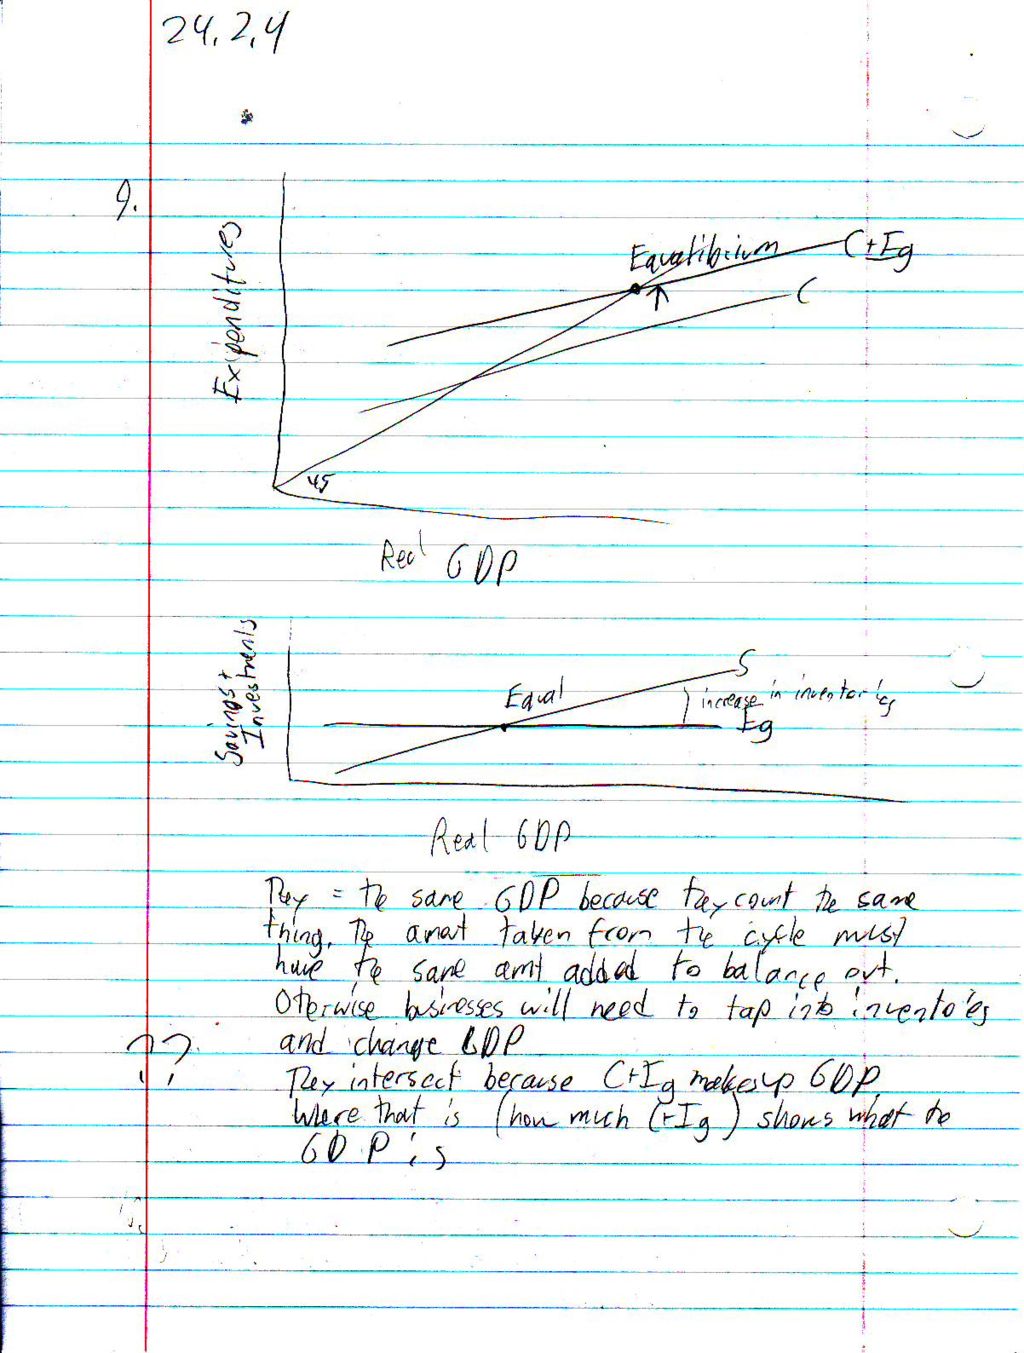 24.2.4
9.
Expenditures
Equalibrium
C+Ig
C
45
Real GDP
Savings +
Investments
S
Equal
increase in inventories
Ig
Real GDP
They = the same GDP because they count the same
thing. The amout taken from the cycle must
have the same amt added to balance out.
Oterwise businesses will need to tap into inventories
and change GDP
??
They intersect because C+Ig makes up GDP.
Where that is (how much C+Ig) shows what the
GDP is